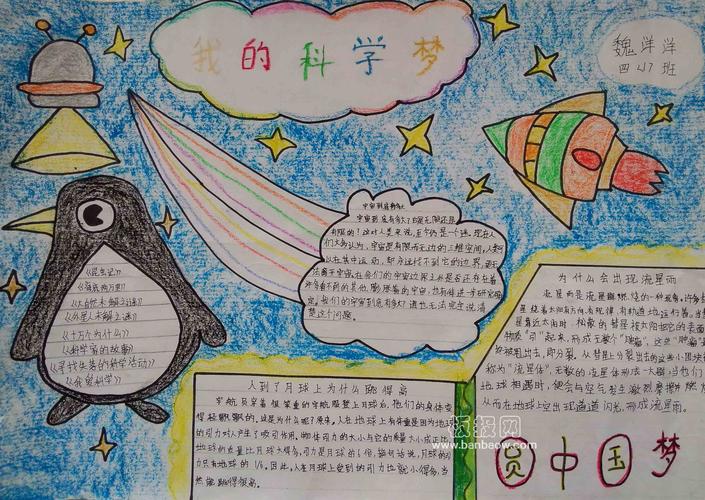 我的科学梦
魏洋洋
四(1)班
宇宙到底有多大
宇宙到底有多大?它是无限还是
有限的?这对人类来说,至今仍是一个谜。现在人
们大多认为,宇宙是有限而无边的三维空间。人类可
以在其中运动,却永远找不到它的边界,更无
法离于宇宙。在我们的宇宙边界之外是否还存在着
许多看不到的其他,膨胀着的宇宙,也有待进一步研究确
定。我们的宇宙到底有多大?谁也无法完全说清
楚这个问题。
《昆虫记》
《海底两万里》
《大自然未解之谜》
《外星人未解之谜》
《十万个为什么》
《科学家的故事》
《寻找失落的科学活动》
《我爱科学》
为什么会出现流星雨
流星雨是流星群燃烧的一种现象。许多彗
星绕着太阳有方向,有规律,有轨道地运行着。当彗
星靠近太阳时,松散的彗星被太阳把它的表面
物质"引"起来,形成无数个"煤堆",这些"煤堆"
称为"流星体",无数的流星体形成一大群,当他们与
地球相遇时,便会与空气发生激烈摩擦,燃
从而在地球上空出现道道闪光,形成流星雨。
人到了月球上为什么跳得高
宇航员穿着很笨重的宇航服登上月球后,他们的身体变
得轻飘飘的。这是为什么呢?原来,人在地球上有体重是因为地球
的引力对人产生了吸引作用。物体引力的大小与它的质量大小成正比
地球的质量比月球大得多,引力是月球的6倍,换句话说,月球的引
力只有地球的1/6。因此,人在月球上受到的引力也就小得多,当
然能跳得很高。
圆中国梦
板报网
www.banbaow.com